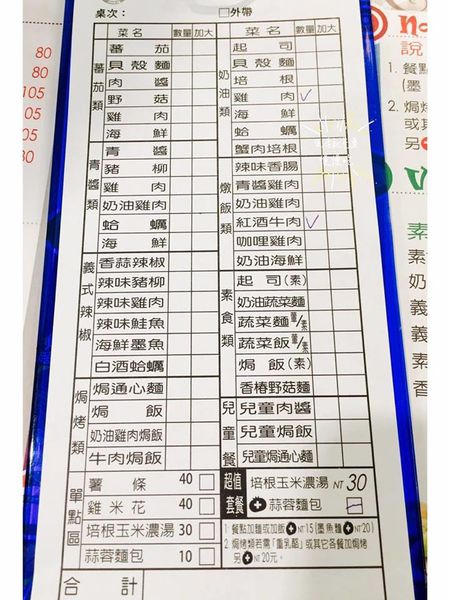 桌次： □外帶
菜名 數量 加大 菜名 數量 加大
番茄類
蕃茄
貝殼麵
肉醬
野菇
雞肉
海鮮
青醬類
青醬
豬柳
雞肉
奶油雞肉
蛤蠣
海鮮
義式辣椒
香蒜辣椒
辣味豬柳
辣味雞肉
辣味鮭魚
海鮮墨魚
白酒蛤蠣
焗烤類
焗通心麵
焗飯
奶油雞肉焗飯
牛肉焗飯
奶油類
起司
貝殼麵
培根
雞肉 ✓
海鮮
蛤蠣
蟹肉培根
燉飯類
辣味香腸
青醬雞肉
奶油雞肉
紅酒牛肉 ✓
咖哩雞肉
奶油海鮮
素食類
起司(素)
奶油蔬菜麵
蔬菜麵 葷/素
蔬菜飯 葷/素
焗飯(素)
香椿野菇麵
兒童餐
兒童肉醬
兒童焗飯
兒童焗通心麵
單點區
薯條 40 □
雞米花 40 □
培根玉米濃湯 30 □
蒜蓉麵包 10 □
超值套餐
培根玉米濃湯 NT 30
+蒜蓉麵包 □
1 餐點加麵或加飯+NT15(墨魚麵+NT20)
2 焗烤類若需「重乳酪」或其它各餐加焗烤
另+NT20元。
合計
80
80
105
105
80
80
說
1. 餐點
(墨
2. 焗烤
或其
另+
素
素
奶
義
義
素
香